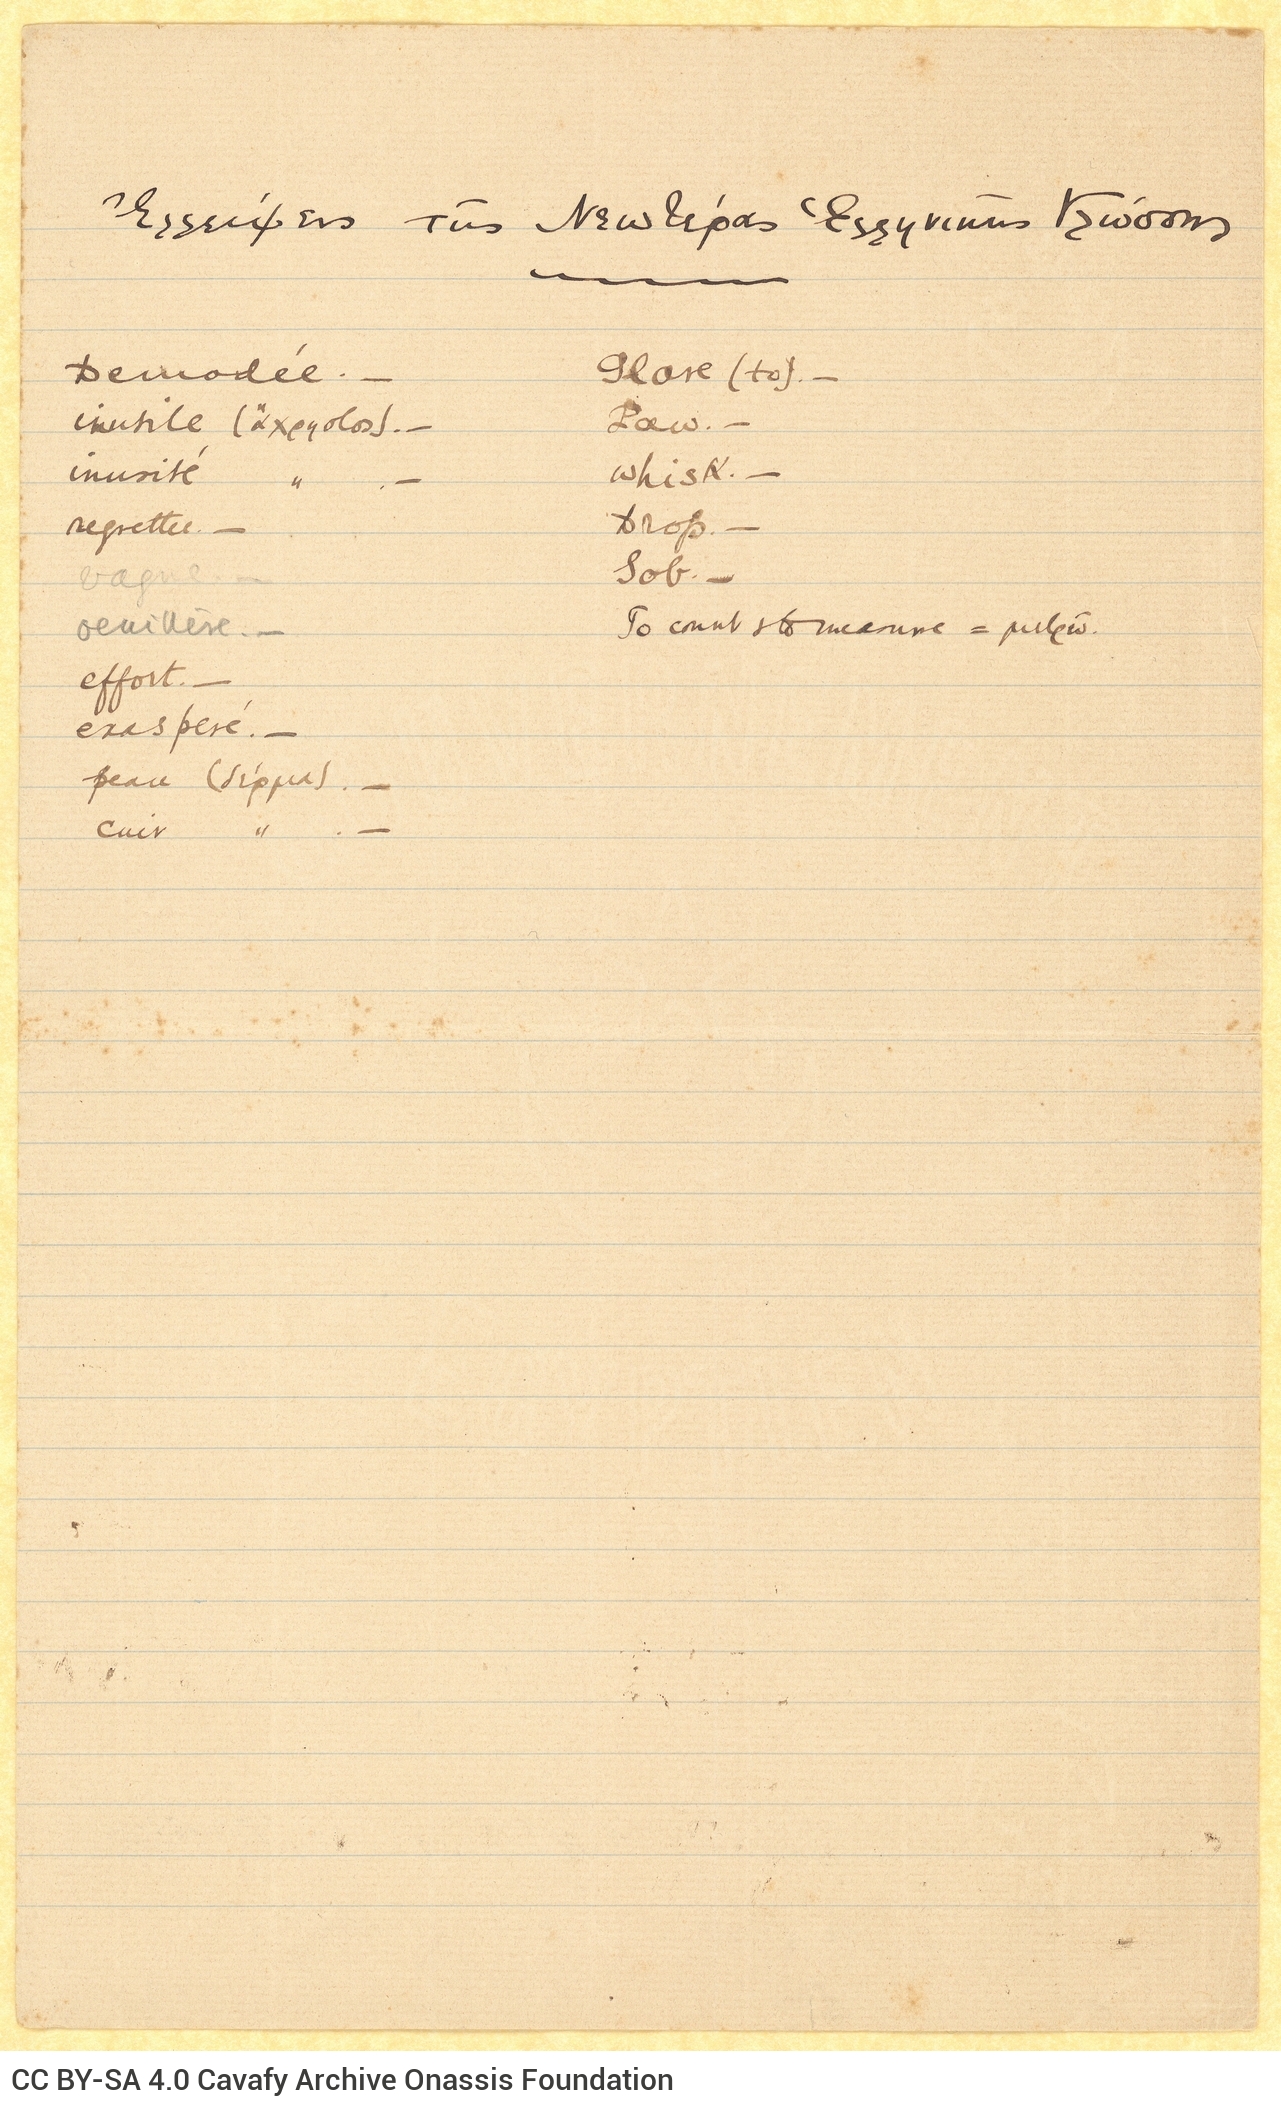 Ἐλλείψεις τῆς Νεωτέρας Ἑλληνικῆς Γλώσσης
Demodée. —
inutile (ἄχρηστος). —
inusité " . —
regretter. —
vague —
oeuillère. —
effort. —
exasperé. —
peau (δέρμα). —
cuir " . —
Glare (to). —
Paw. —
whisk. —
Drop. —
Sob. —
To count & to measure = μετρῶ.
CC BY-SA 4.0 Cavafy Archive Onassis Foundation